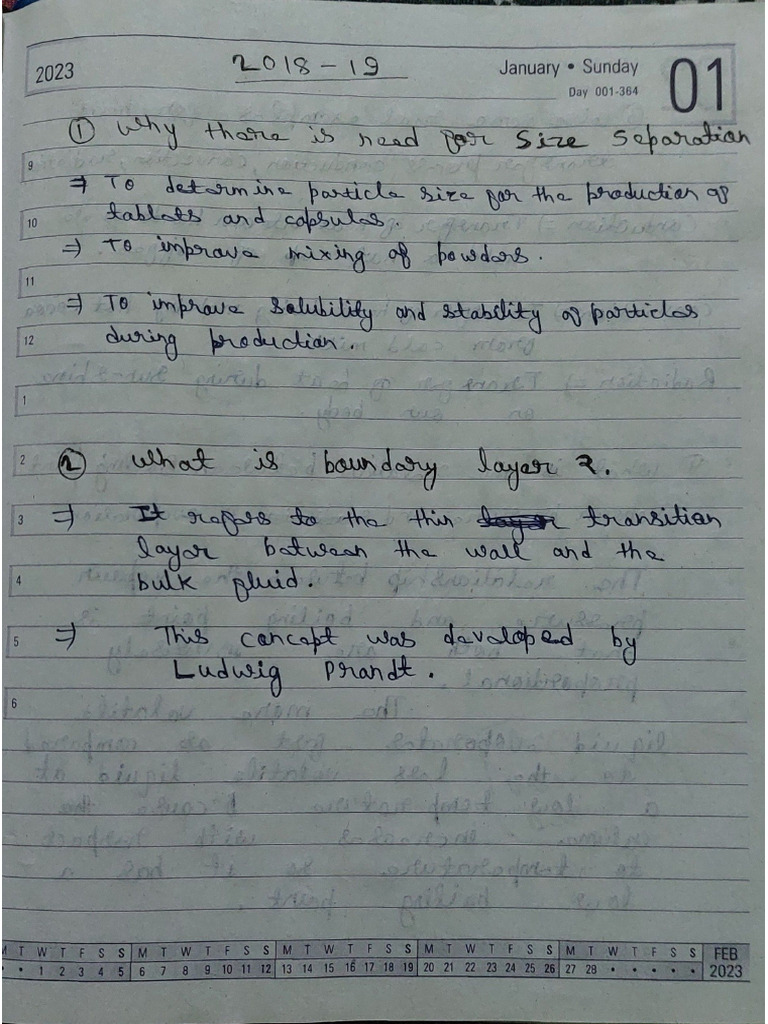 2023
2018-19
January • Sunday
Day 001-364
01
① Why there is need for Size Separation
9
⇒ To determine particle size for the production of
10
tablets and capsules.
⇒ To improve mixing of powders.
11
⇒ To improve solubility and stability of particles
12
during production.
1
2
② What is boundary layer ?.
3
⇒ It refers to the thin transition
layer between the wall and the
4
bulk fluid.
5
⇒ This concept was developed by
Ludwig Prandt.
6
M T W T F S S M T W T F S S M T W T F S S M T W T F S S M T W T F S S FEB
• • 1 2 3 4 5 6 7 8 9 10 11 12 13 14 15 16 17 18 19 20 21 22 23 24 25 26 27 28 • • • • • 2023